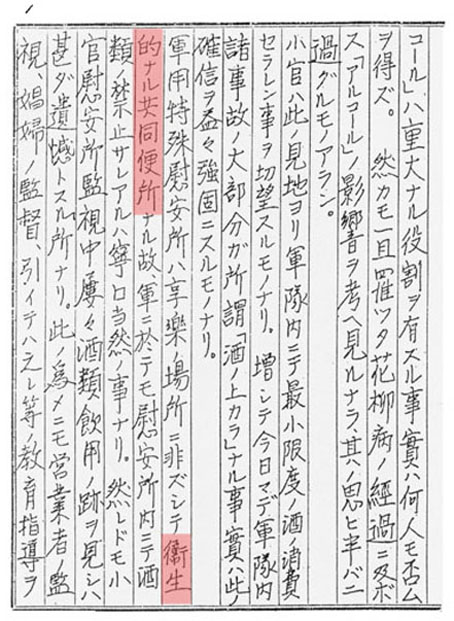 コール」ハ重大ナル役割ヲ有スル事實ハ何人モ否ム
ヲ得ズ。然カモ一旦罹ツタ花柳病ノ經過ニ及ボ
ス「アルコール」ノ影響ヲ考ヘ見ルナラ、其ハ思ヒ半バニ
過グルモノアラン。
小官ハ此ノ見地ヨリ軍隊内ニテ最小限度ノ酒ノ消費
セラレン事ヲ切望スルモノナリ。増シテ今日マデ軍隊内
諸事故ノ大部分ガ所謂「酒ノ上カラ」ナル事實ハ此ノ
確信ヲ益々強固ニスルモノナリ。
軍用特殊慰安所ハ享樂ノ場所ニ非ズシテ衞生
的ナル共同便所ナル故軍ニ於テモ慰安所内ニテ酒
類ノ禁止サレアルハ寧ロ当然ノ事ナリ。然レドモ小
官慰安所監視中屡々酒類飲用ノ跡ヲ見シハ
甚ダ遺憾トスル所ナリ。此ノ為メニモ営業者ノ監
視、娼婦ノ監督、引イテハ之レ等ノ教育指導ヲ